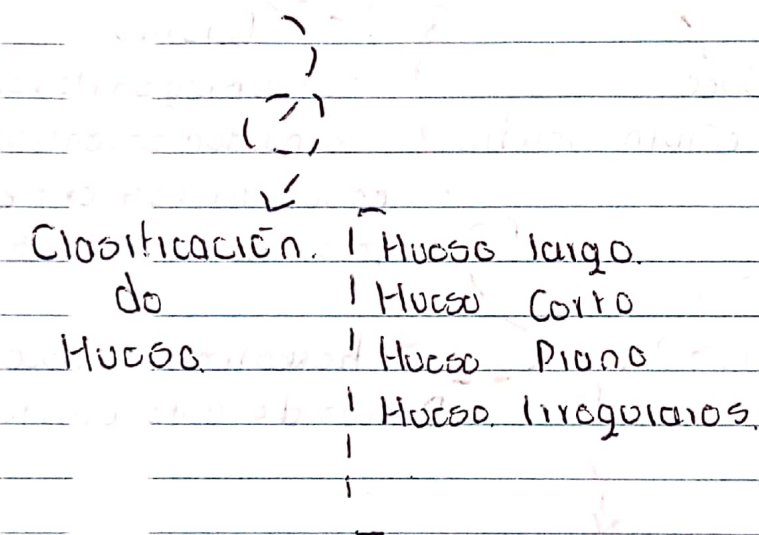 Clasificación.
de
Hueso.
Hueso largo.
Hueso Corto
Hueso Plano
Hueso. Irregulares.